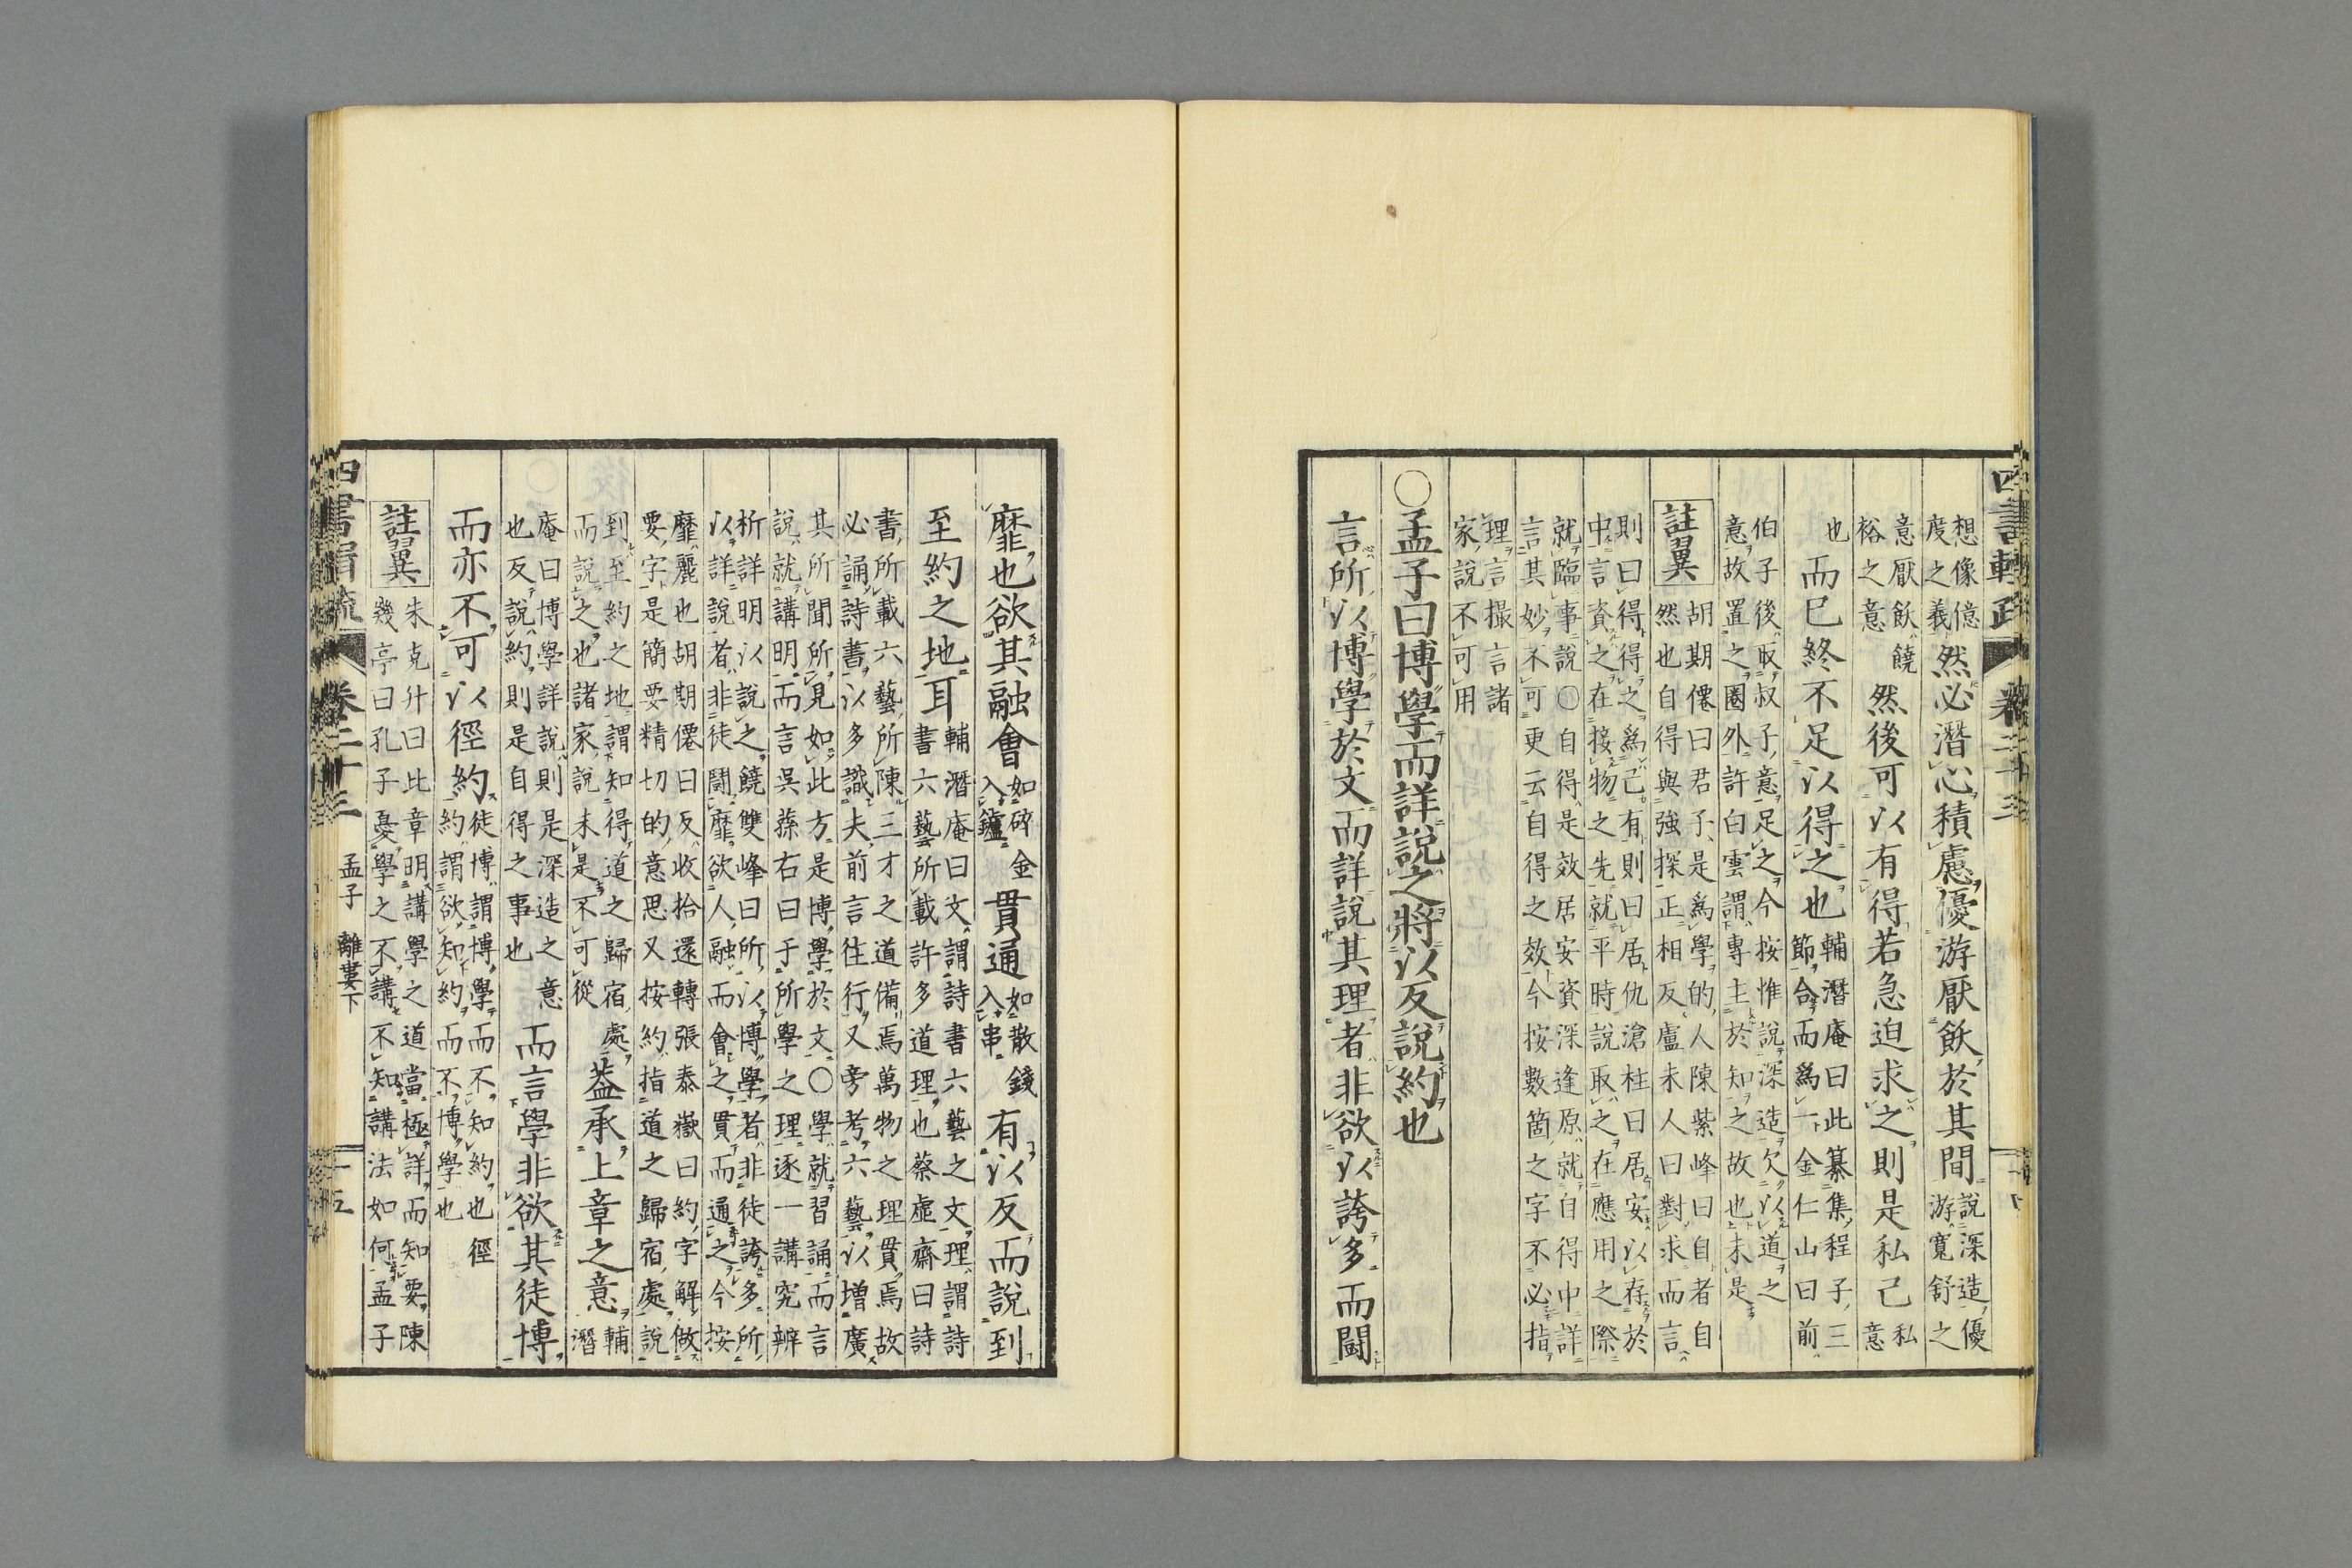 四書輯疏 卷二十三
想像億
度之義
然必潛心積慮優游厭飫於其間
說深造優
游寬舒之
意厭飫饒
裕之意
然後可以有得若急迫求之則是私己
私
意
也
而已終不足以得之也
輔潛庵曰此纂集程子三
節合而爲一金仁山曰前
伯子後取叔子意足之今按惟說深造欠以道之
意故置之圈外許白雲謂專主於知之故也未是
註翼
胡期僊曰君子是爲學的人陳紫峰曰自者自
然也自得與強探正相反盧未人曰對求而言
則曰得得之爲己有則曰居仇滄柱曰居安以存於
中言資之在接物之先就平時說取之在應用之際
就臨事說○自得是效居安資深逢原就自得中詳
言其妙不可更云自得之效今按數箇之字不必指
理言撮言諸
家說不可用
○孟子曰博學而詳說之將以反說約也
言所以博學於文而詳說其理者非欲以誇多而闘
靡也欲其融會
如碎金
入鑪
貫通
如散錢
入串
有以反而說到
至約之地耳
輔潛庵曰文謂詩書六藝之文理謂詩
書六藝所載許多道理也蔡虛齋曰詩
書所載六藝所陳三才之道備焉萬物之理貫焉故
必誦詩書以多識夫前言往行又旁考六藝以增廣
其所聞所見如此方是博學於文○學就習誦而言
說就講明而言吳蓀右曰于所學之理逐一講究辨
析詳明以說之饒雙峰曰所以博學者非徒誇多所
以詳說者非徒闘靡欲人融而會之貫而通之今按
靡麗也胡期僊曰反收拾還轉張泰嶽曰約字解做
要字是簡要精切的意思又按約指道之歸宿處說
到至約之地謂知得道之歸宿處
而說之也諸家說未是不可從
蓋承上章之意
輔
潛
庵曰博學詳說則是深造之意
也反說約則是自得之事也
而言學非欲其徒博
而亦不可以徑約
徒博謂博學而不知約也徑
約謂欲知約而不博學也
註翼
朱克升曰此章明講學之道當極詳而知要陳
幾亭曰孔子憂學之不講不知講法如何孟子
四書輯疏 卷二十三 孟子 離婁下 十五